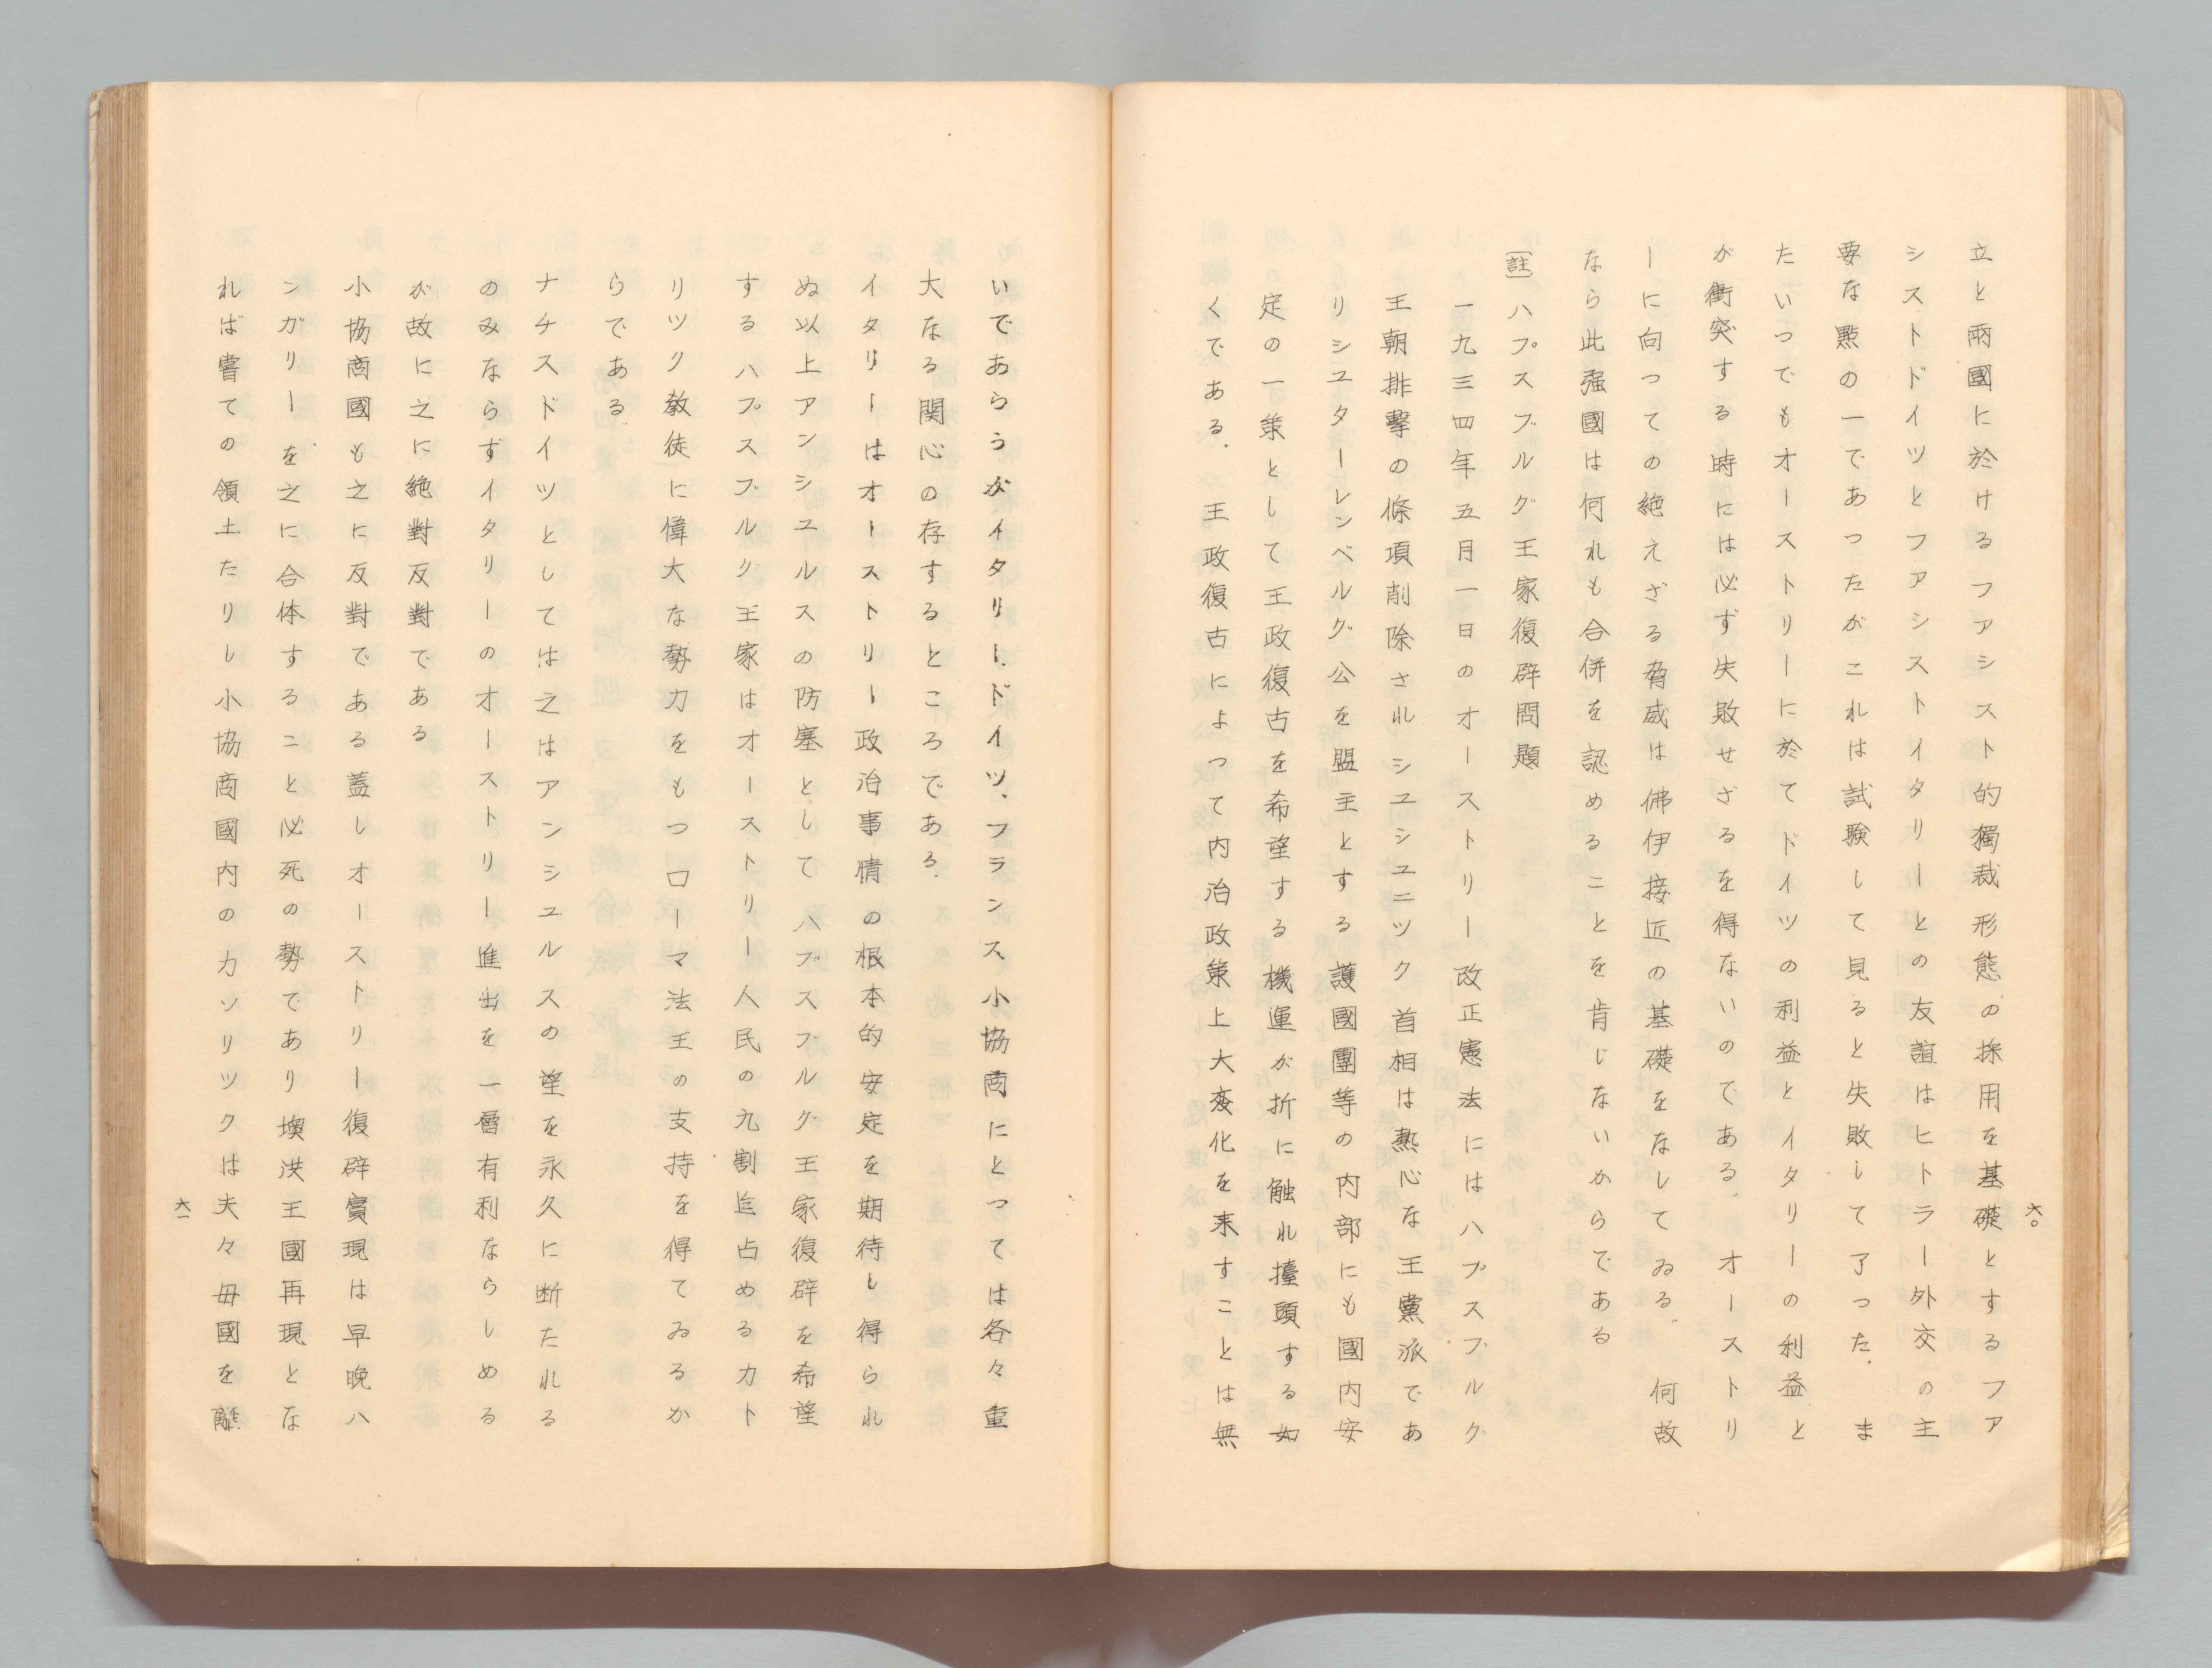 立と兩國に於けるフアシスト的獨裁形態の採用を基礎とするフア
シストドイツとフアシストイタリーとの友誼はヒトラー外交の主
要な點の一であつたがこれは試験して見ると失敗して了つた．ま
たいつでもオーストリーに於てドイツの利益とイタリーの利益と
が衝突する時には必ず失敗せざるを得ないのてある．オーストリ
ーに向つての絶えざる脅威は佛伊接近の基礎をなしてゐる．何故
なら此强國は何れも合併を認めることを肯じないからである
〔註〕ハプスブルグ王家復辟問題
一九三四年五月一日のオーストリー改正憲法にはハプスブルグ
王朝排擊の條項削除されシユシユニツク首相は熱心な王黨派であ
リシユターレンベルグ公を盟主とする護國團等の内部にも國内安
定の一策として王政復古を希望する機運が折に触れ擡頭する如
くである．王政復古によつて内治政策上大変化を来すことは無
六〇
いであらうがイタリー、ドイツ、フランス、小協商にとつては各々重
大なる関心の存するところである．
イタリーはオーストリー政治事情の根本的安定を期待し得られ
ぬ以上アンシユルスの防塞としてハプスブルグ王家復辟を希望
するハプスブルグ王家はオーストリー人民の九割迄占めるカト
リツク教徒に偉大な勢力をもつローマ法王の支持を得てゐるか
らである．
ナチスドイツとしては之はアンシユルスの望を永久に断たれる
のみならずイタリーのオーストリー進出を一層有利ならしめる
が故に之に絶對反對である
小協商國も之に反對である蓋しオーストリー復辟實現は早晩ハ
ンガリーを之に合体すること必死の勢であり墺洪王國再現とな
れば嘗ての領土たりし小協商國内のカソリツクは夫々毋國を離
六一